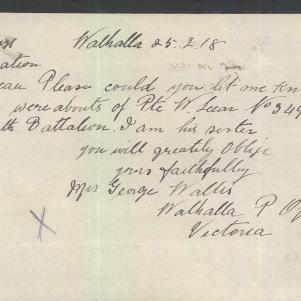 Walhalla 25.2.18
ation
eau Please could you let me kn
wereabouts of Pte W. Lear No 349
th Battalion. I am his sister
you will greatily oblige
yors faithfully
Mrs George Wallis
Walhalla P O
Victoria
X